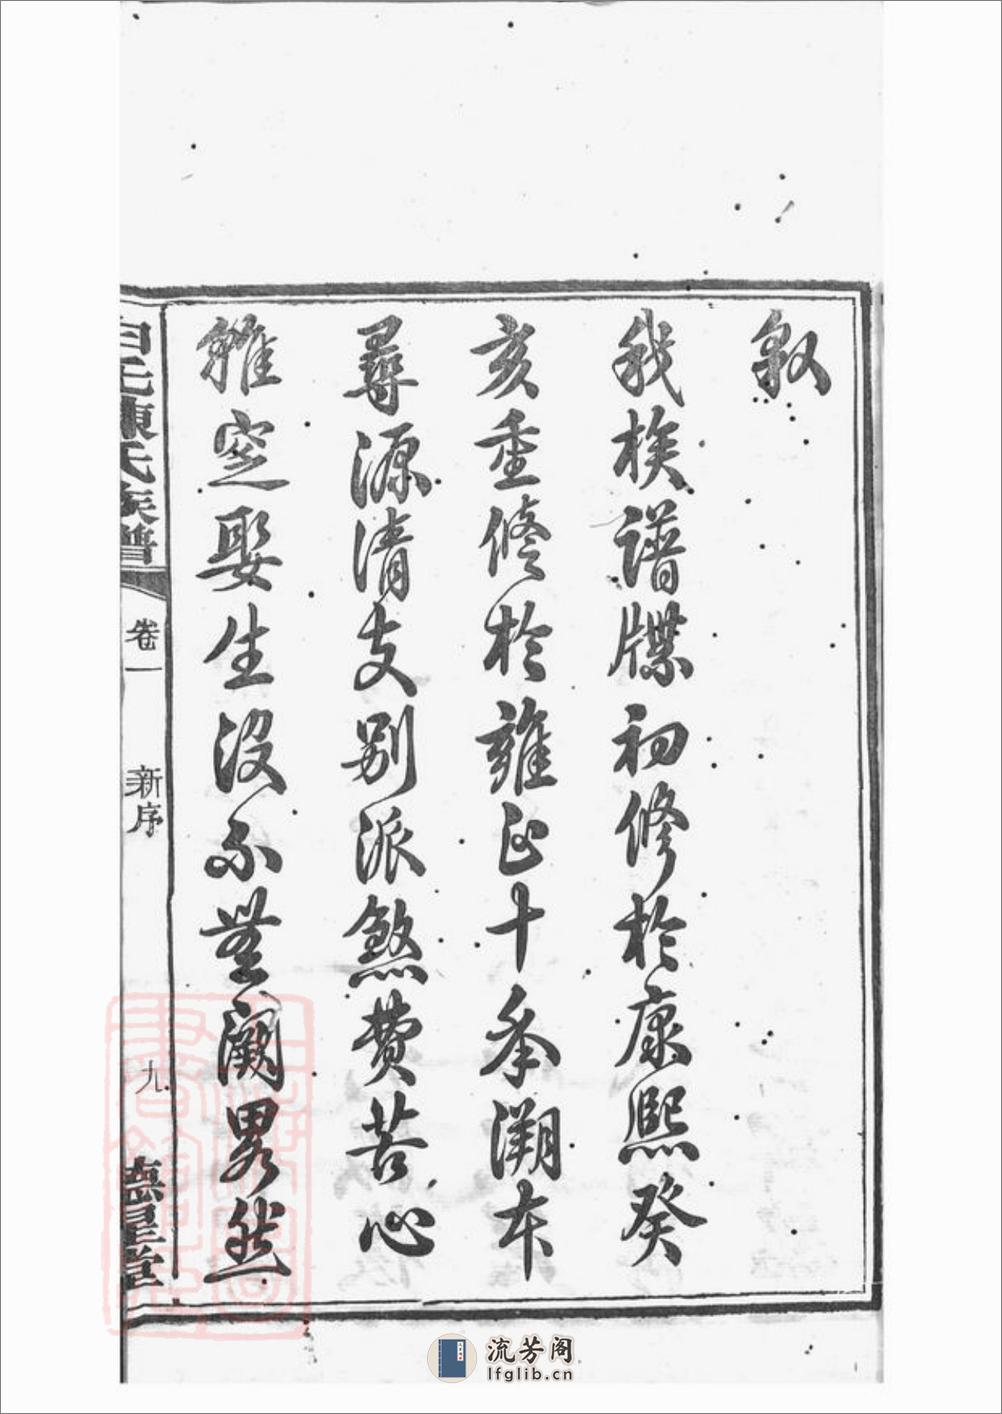 敘
我族譜牒初修於康熙癸
亥重修於雍正十年溯本
尋源清支別派煞費苦心
雖空娶生没不無闕畧然
陳氏族譜
卷一
新序
九
德星堂
流芳阁
lfglib.cn